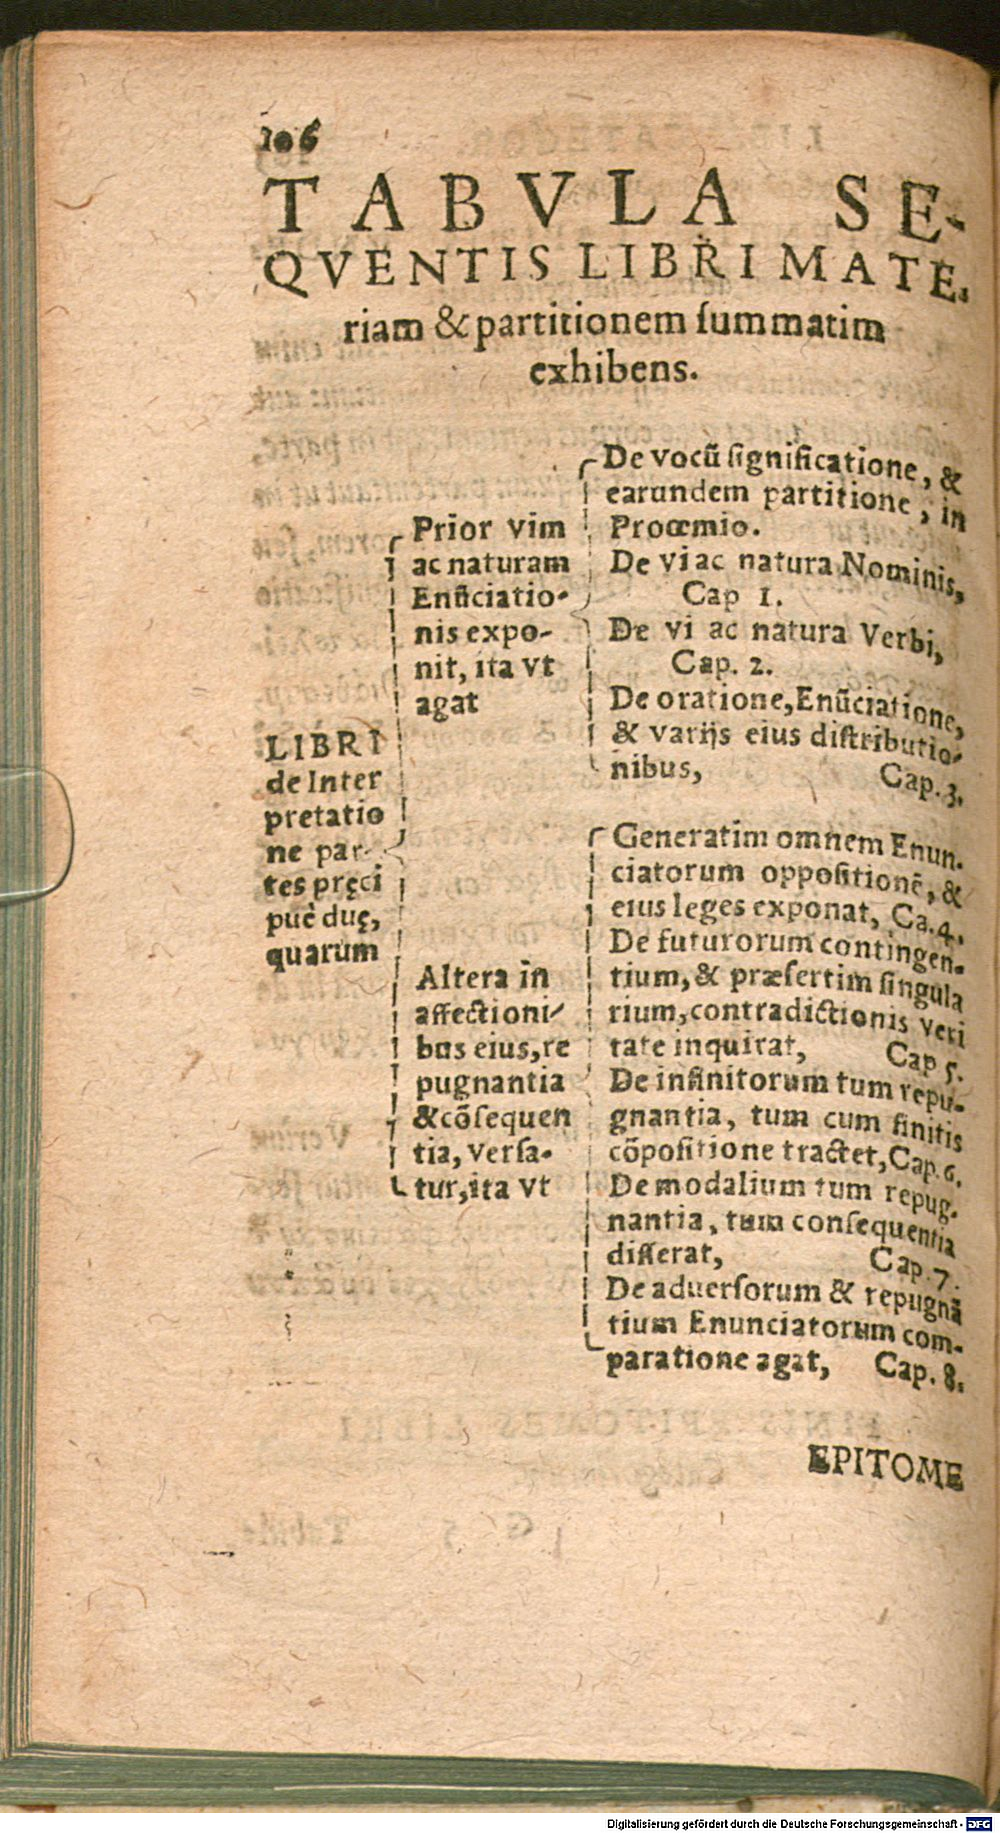 106
TABVLA SE-
QVENTIS LIBRI MATE-
riam & partitionem ſummatim
exhibens.
LIBRI
de Inter
pretatio
ne par-
tes pręci
puè duę,
quarum
Prior vim
ac naturam
Enũciatio-
nis expo-
nit, ita vt
agat
De vocũ ſignificatione, &
earundem partitione, in
Proœmio.
De vi ac natura Nominis,
Cap 1.
De vi ac natura Verbi,
Cap. 2.
De oratione, Enũciatione,
& varijs eius diſtributio-
nibus, Cap. 3.
Altera in
affectioni-
bus eius, re
pugnantia
& cõſequen
tia, verſa-
tur, ita vt
Generatim omnem Enun-
ciatorum oppoſitionẽ, &
eius leges exponat, Ca. 4.
De futurorum contingen-
tium, & præſertim ſingula
rium, contradictionis veri
tate inquirat, Cap 5.
De infinitorum tum repu-
gnantia, tum cum finitis
cõpoſitione tractet, Cap. 6.
De modalium tum repug-
nantia, tum conſequentia
diſſerat, Cap. 7.
De aduerſorum & repugnã
tium Enunciatorum com-
paratione agat, Cap. 8.
EPITOME
Digitalisierung gefördert durch die Deutsche Forschungsgemeinschaft - DFG